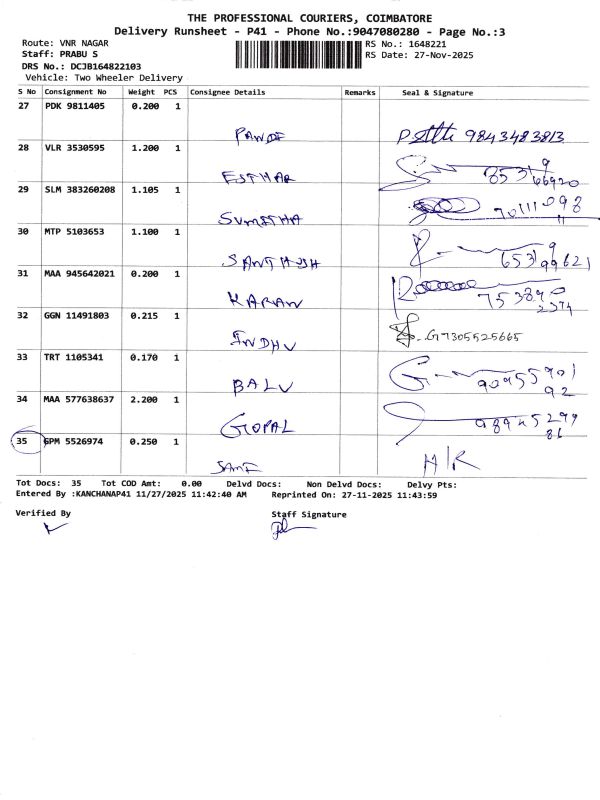 THE PROFESSIONAL COURIERS, COIMBATORE
Delivery Runsheet - P41 - Phone No.:9047080280 - Page No.:3
Route: VNR NAGAR
RS No.: 1648221
Staff: PRABU S
RS Date: 27-Nov-2025
DRS No.: DCJB164822103
Vehicle: Two Wheeler Delivery
S No Consignment No Weight PCS Consignee Details Remarks Seal & Signature
27 PDK 9811405 0.200 1
9843483813
28 VLR 3530595 1.200 1
ESTHAR
29 SLM 383260208 1.105 1
SUMITHA
30 MTP 5103653 1.100 1
SANTHOSH
31 MAA 945642021 0.200 1
KARAN
32 GGN 11491803 0.215 1
INDHU G7305525665
33 TRT 1105341 0.170 1
BALU
34 MAA 577638637 2.200 1
GOPAL
35 GPM 5526974 0.250 1
SAME H/R
Tot Docs: 35 Tot COD Amt: 0.00 Delvd Docs: Non Delvd Docs: Delvy Pts:
Entered By :KANCHANAP41 11/27/2025 11:42:40 AM Reprinted On: 27-11-2025 11:43:59
Verified By Staff Signature